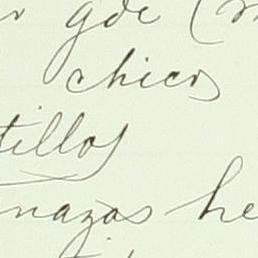 gde (
chicos
tillos
nazas he